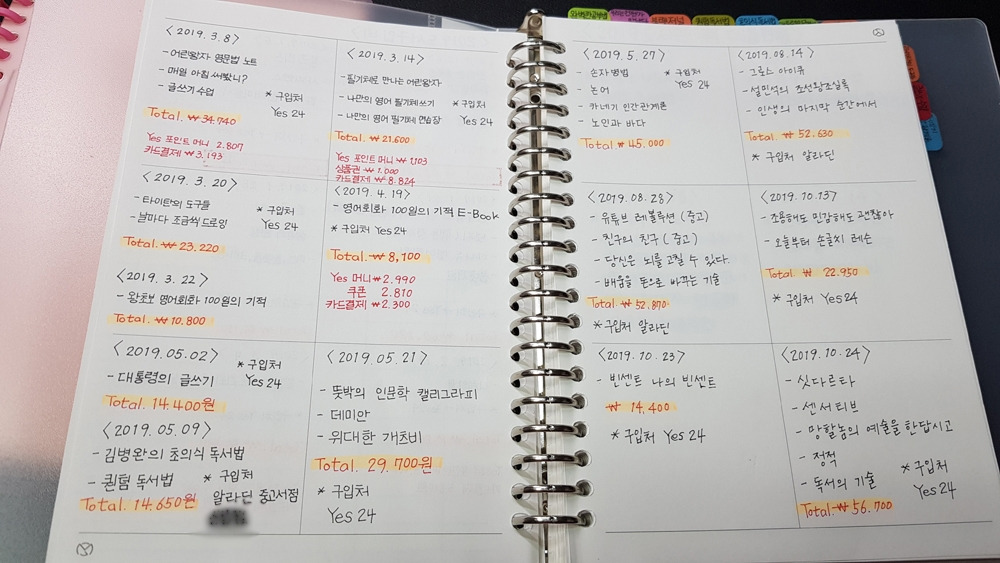 <2019. 3. 8>
- 어린왕자 영문법 노트
- 매일 아침 써봤니?
- 글쓰기 수업
* 구입처
Yes 24
Total. ₩34.740
Yes 포인트 머니 2.807
카드결제 ₩3.193
<2019. 3. 14>
- 필기체로 만나는 어린왕자
- 나만의 영어 필기체 쓰기
- 나만의 영어 필기체 연습장
* 구입처
Yes 24
Total. ₩21.600
Yes 포인트 머니 ₩1,103
상품권 ₩1.000
카드결제 ₩8.824
<2019. 3. 20>
- 타이탄의 도구들
- 날마다 조금씩 드로잉
* 구입처
Yes 24
Total. ₩23.220
<2019. 4. 19>
- 영어회화 100일의 기적 E-Book
* 구입처 Yes 24
Total. ₩8,100
Yes 머니 ₩2.990
쿠폰 2.810
카드결제 ₩2.300
<2019. 3. 22>
- 왕초보 영어회화 100일의 기적
Total. ₩10.800
<2019. 05. 02>
- 대통령의 글쓰기
* 구입처
Yes 24
Total. 14.400원
<2019. 05. 09>
- 김병완의 초의식 독서법
- 퀀텀 독서법
* 구입처
알라딘 중고서점
Total. 14.650원
<2019. 05. 21>
- 뚯박의 인문학 캘리그라피
- 데미안
- 위대한 개츠비
Total. 29.700원
* 구입처
Yes 24
<2019. 5. 27>
- 손자병법
- 논어
- 카네기 인간관계론
- 노인과 바다
* 구입처
Yes 24
Total ₩45.000
<2019. 08. 14>
- 그릿스 아이큐
- 설민석의 조선왕조실록
- 인생의 마지막 순간에서
Total. ₩52.630
* 구입처 알라딘
<2019. 08. 28>
- 유튜브 레볼루션 (중고)
- 친구의 친구 (중고)
- 당신은 뇌를 고칠 수 있다.
- 배움을 돈으로 바꾸는 기술
Total ₩52.870
* 구입처 알라딘
<2019. 10. 13>
- 조용해도 민감해도 괜찮아
- 오늘부터 손글씨 레슨
Total ₩22.950
* 구입처 Yes24
<2019. 10. 23>
- 빈센트 나의 빈센트
₩14,400
* 구입처 Yes 24
<2019. 10. 24>
- 싯다르타
- 센서티브
- 망할놈의 예술을 한답시고
- 정적
- 독서의 기술
* 구입처
Yes 24
Total. ₩56.700